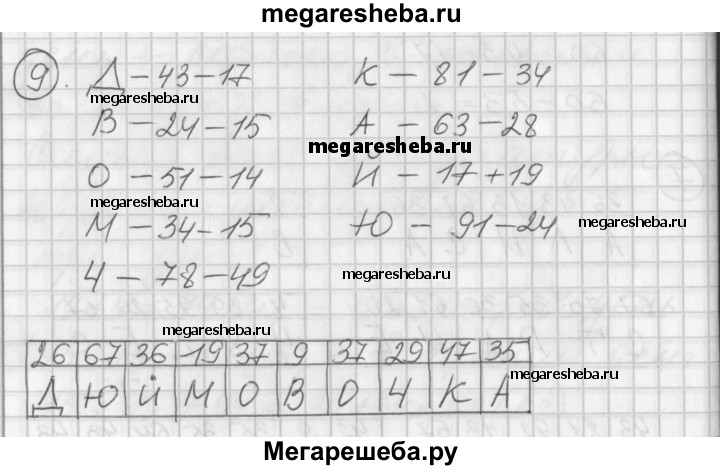 megaresheba.ru
9. Д – 43 – 17 К – 81 – 34
megaresheba.ru
В – 24 – 15 А – 63 – 28
megaresheba.ru
О – 51 – 14 Й – 17 + 19
megaresheba.ru
М – 34 – 15 Ю – 91 – 24
megaresheba.ru
Ч – 78 – 49
megaresheba.ru
megaresheba.ru
26 67 36 19 37 9 37 29 47 35
megaresheba.ru
Д Ю Й М О В О Ч К А
Мегарешеба.ру